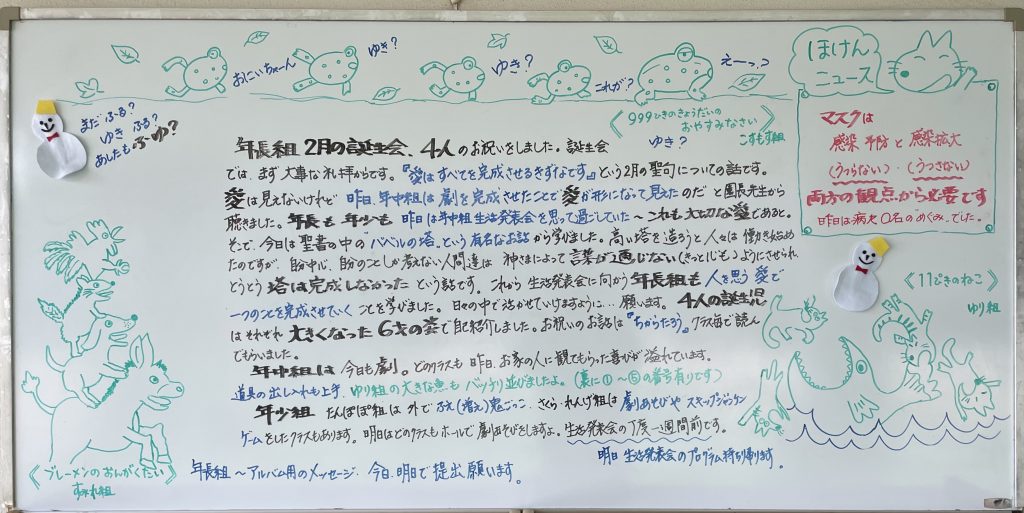 おにいちゃーん
ゆき?
ゆき?
これが?
えーっ?
ほけん
ニュース
まだふる?
ゆきふる?
あしたもふゆ?
《999ひきのきょうだいの
おやすみなさい》
ゆき?
こすもす組
マスクは
感染予防と感染拡大
(うつらない)(うつさない)
両方の観点から必要です
昨日は病欠0名のめぐみでした。
年長組 2月の誕生会、4人のお祝いをしました。誕生会
では、まず大事な礼拝からです。『愛はすべてを完成させるきずなです』という2月の聖句についての話です。
愛は見えないけれど 昨日、年中組は劇を完成させたことで愛が形になって見えたのだと園長先生から
聴きました。年長も年少も 昨日は年中組生活発表会を思って過ごしていた〜これも大切な愛であると。
そこで、今日は聖書の中の"バベルの塔"という有名なお話から学びました。高い塔を造ろうと人々は働き始め
たのですが、自分中心、自分のことしか考えない人間達は 神さまによって言葉が通じない
とうとう塔は完成しなかったという話です。これから生活発表会に向かう年長組も人を思う愛で
一つのことを完成させていくことを学びました。日々の中で活かせていけますように…願います。4人の誕生児
はそれぞれ大きくなった6才の姿で自己紹介しました。お祝いのお話は『ちからたろう』クラス毎で読ん
でもらいました。
年中組は今日も劇。どのクラスも昨日、お家の人に観てもらった喜びが溢れています。
道具の出し入れも上手、ゆり組の大きな魚もバッチリ並びましたよ。(裏に①〜⑤の番号有りです)
年少組 たんぽぽ組は外でふえ(増え)鬼ごっこ、さくら・れんげ組は劇あそびやスキップジャンケン
ゲームをしたクラスもあります。明日はどのクラスもホールで劇あそびをしますよ。生活発表会の丁度一週間前です。
年長組〜アルバム用のメッセージ、今日、明日で提出願います。
明日 生活発表会のプログラム持ち帰ります。
《ブレーメンのおんがくたい》
すみれ組
《11ぴきのねこ》
ゆり組